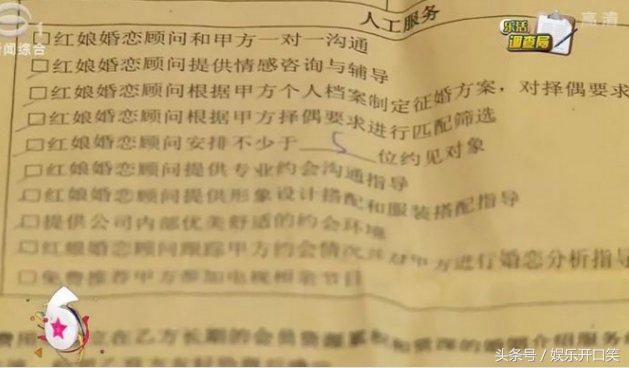 人工服务
乐活
调查局
高清
新闻综合
1
□红娘婚恋顾问和甲方一对一沟通
□红娘婚恋顾问提供情感咨询与辅导
□红娘婚恋顾问根据甲方个人档案制定征婚方案，对择偶要求
□红娘婚恋顾问根据甲方择偶要求进行匹配筛选
□红娘婚恋顾问安排不少于 5 位约见对象
□红娘婚恋顾问提供专业约会沟通指导
□红娘婚恋顾问提供形象设计搭配和服装搭配指导
□提供公司内部优美舒适的约会环境
□红娘婚恋顾问跟踪甲方约会情况并对甲方进行婚恋分析指导
□免费推荐甲方参加电视相亲节目
费用 立在乙方长期的会员资源
6
头条号／娱乐开口笑